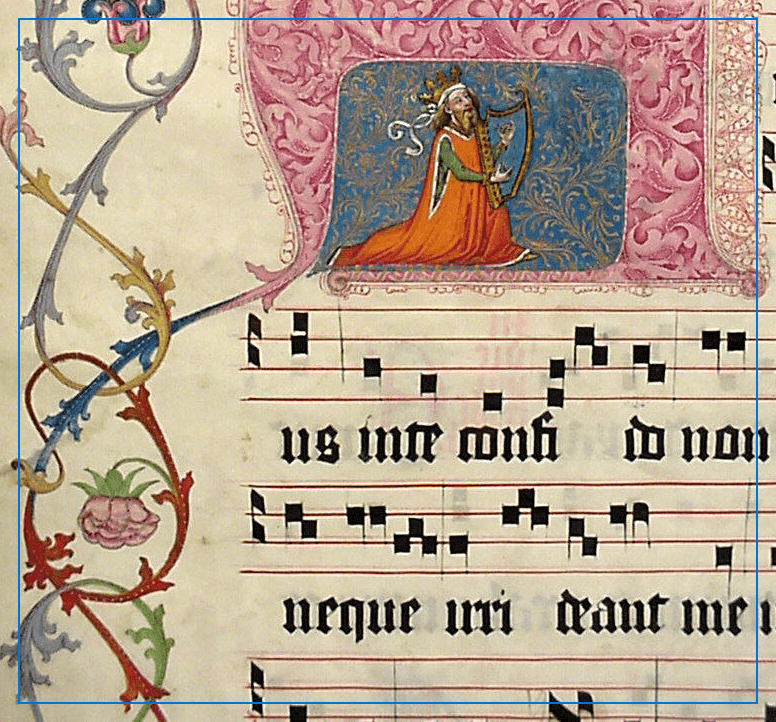 us in te confi do non
neque irri deant me i